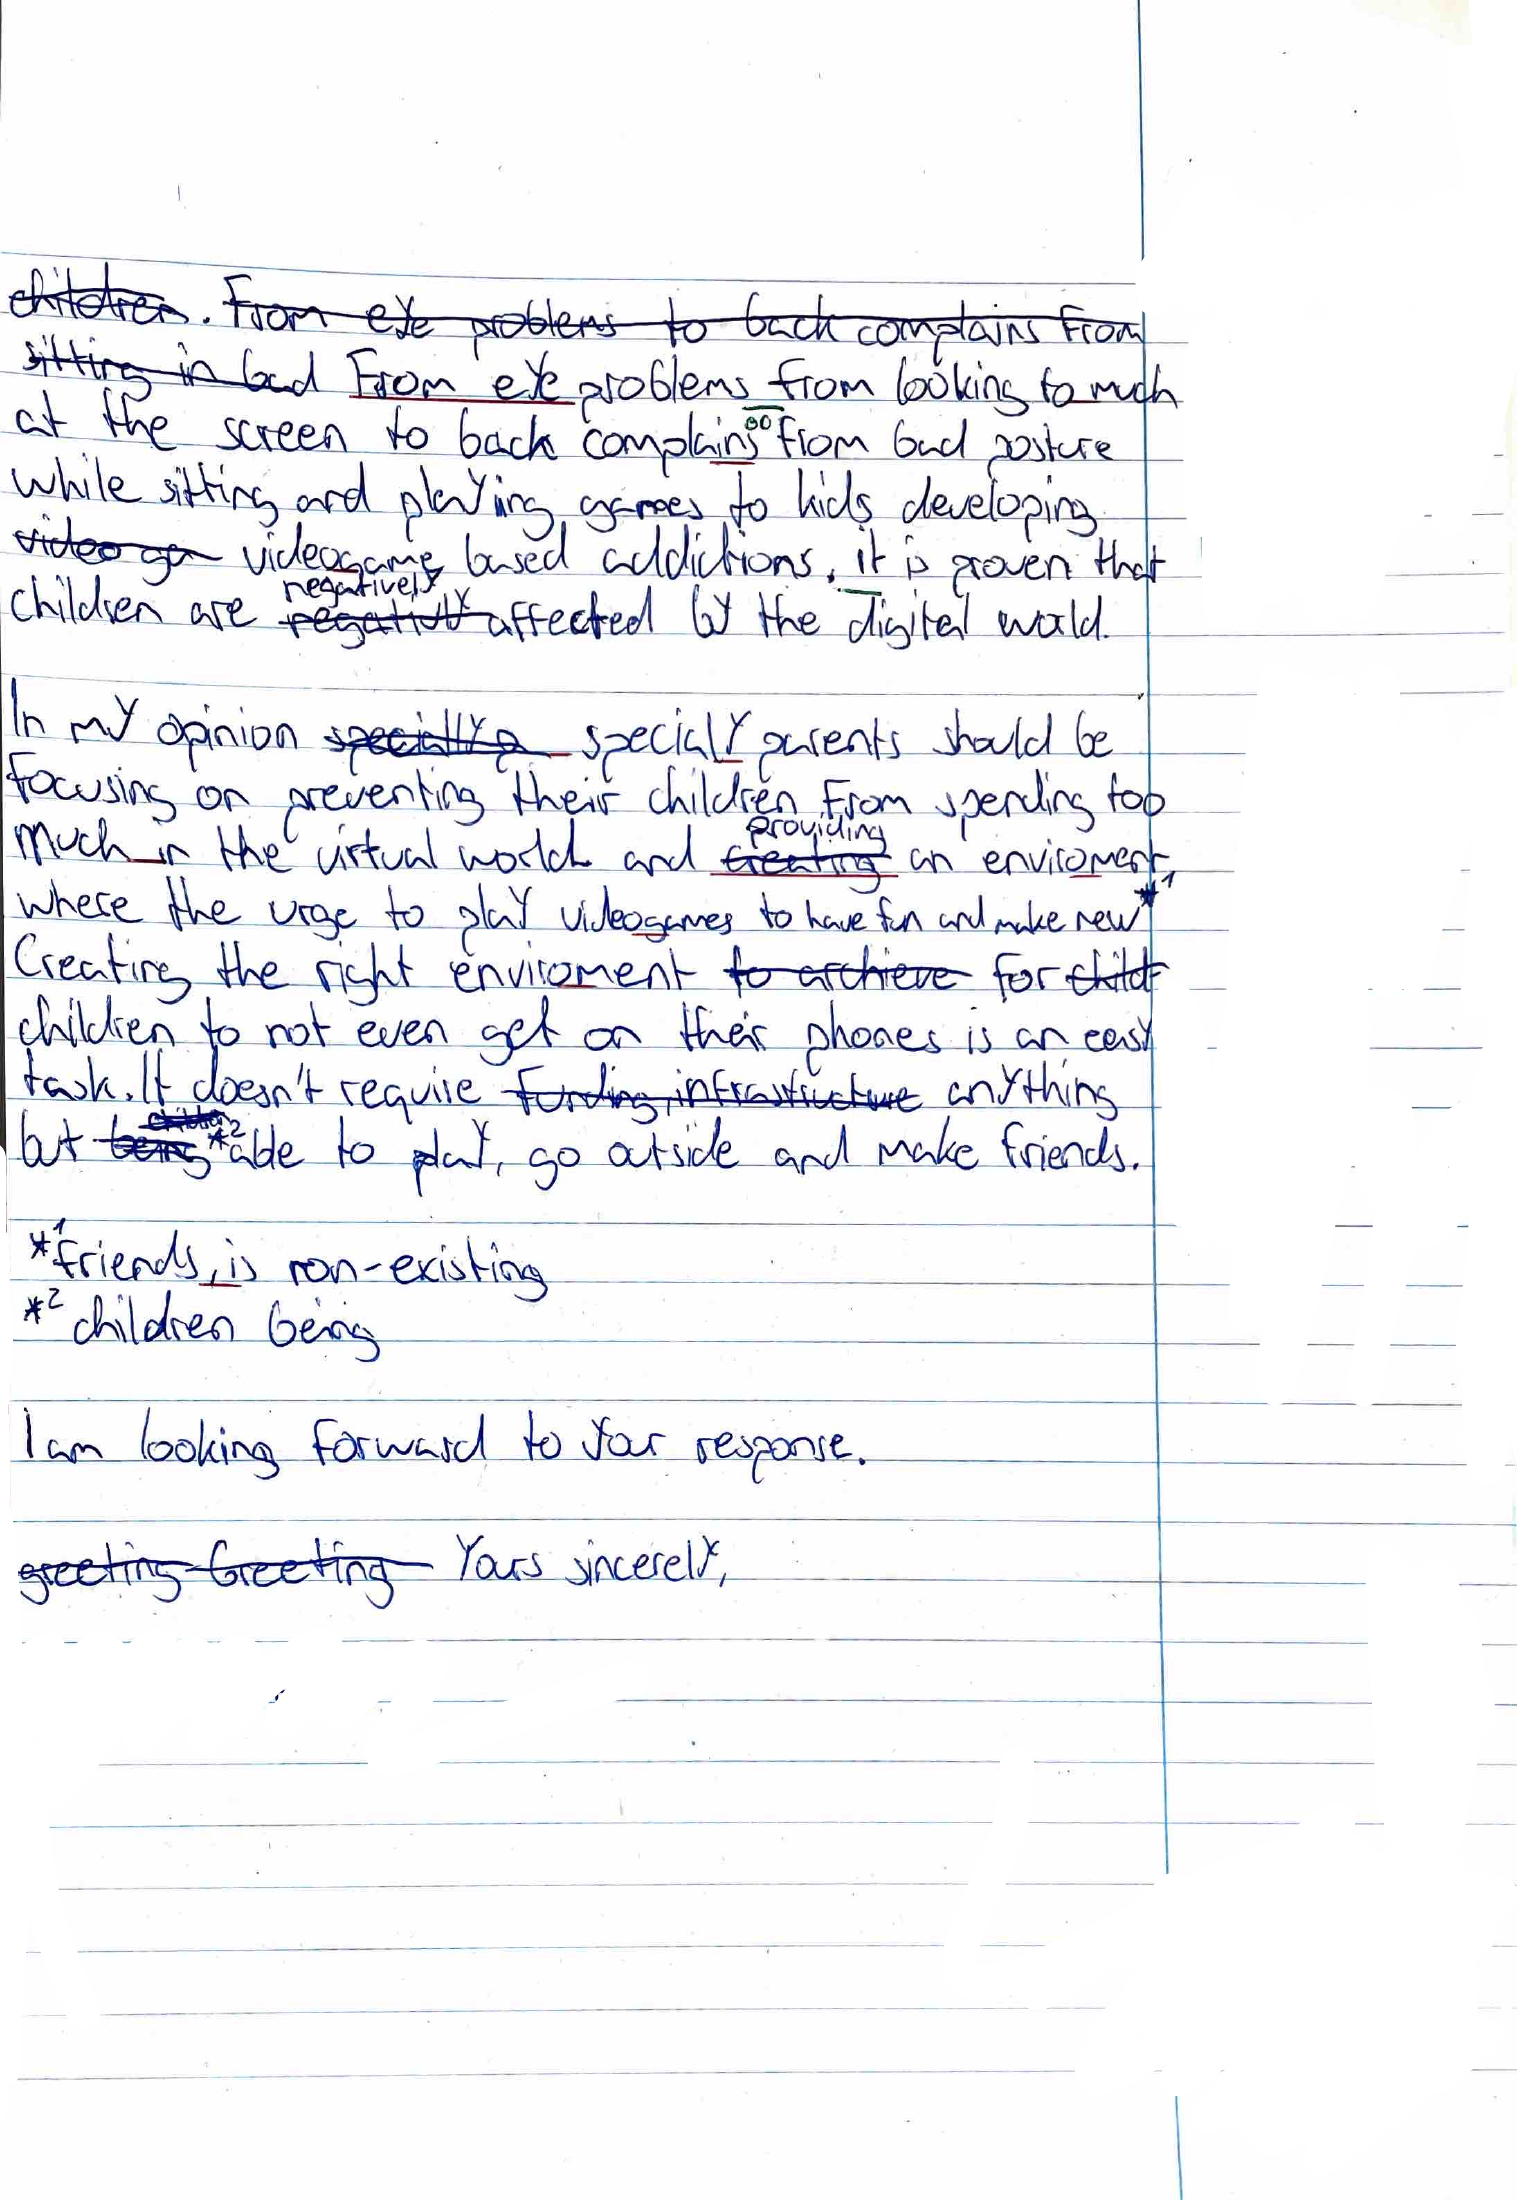 children. From eye problems to back complains from
sitting in bad From eye problems from looking to much
at the screen to back complains from bad posture
while sitting and playing games to kids developing
video ga videogame based addictions, it is proven that
negatively
children are negativly affected by the digital world.
In my opinion specially p specialy parents should be
focusing on preventing their children from spending too
providing
much in the virtual world and creating an enviroment,
where the urge to play videogames to have fun and make new *1
Creating the right enviroment to archieve for child
children to not even get on their phones is an easy
task. It doesn't require funding, infrastructure anything
but being *2 able to play, go outside and make friends.
*1 friends, is non-existing
*2 children being
I am looking forward to your response.
greeting Greeting Yours sincerely,